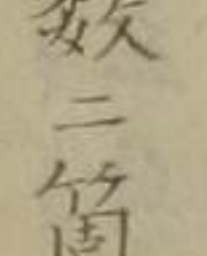 数二箇